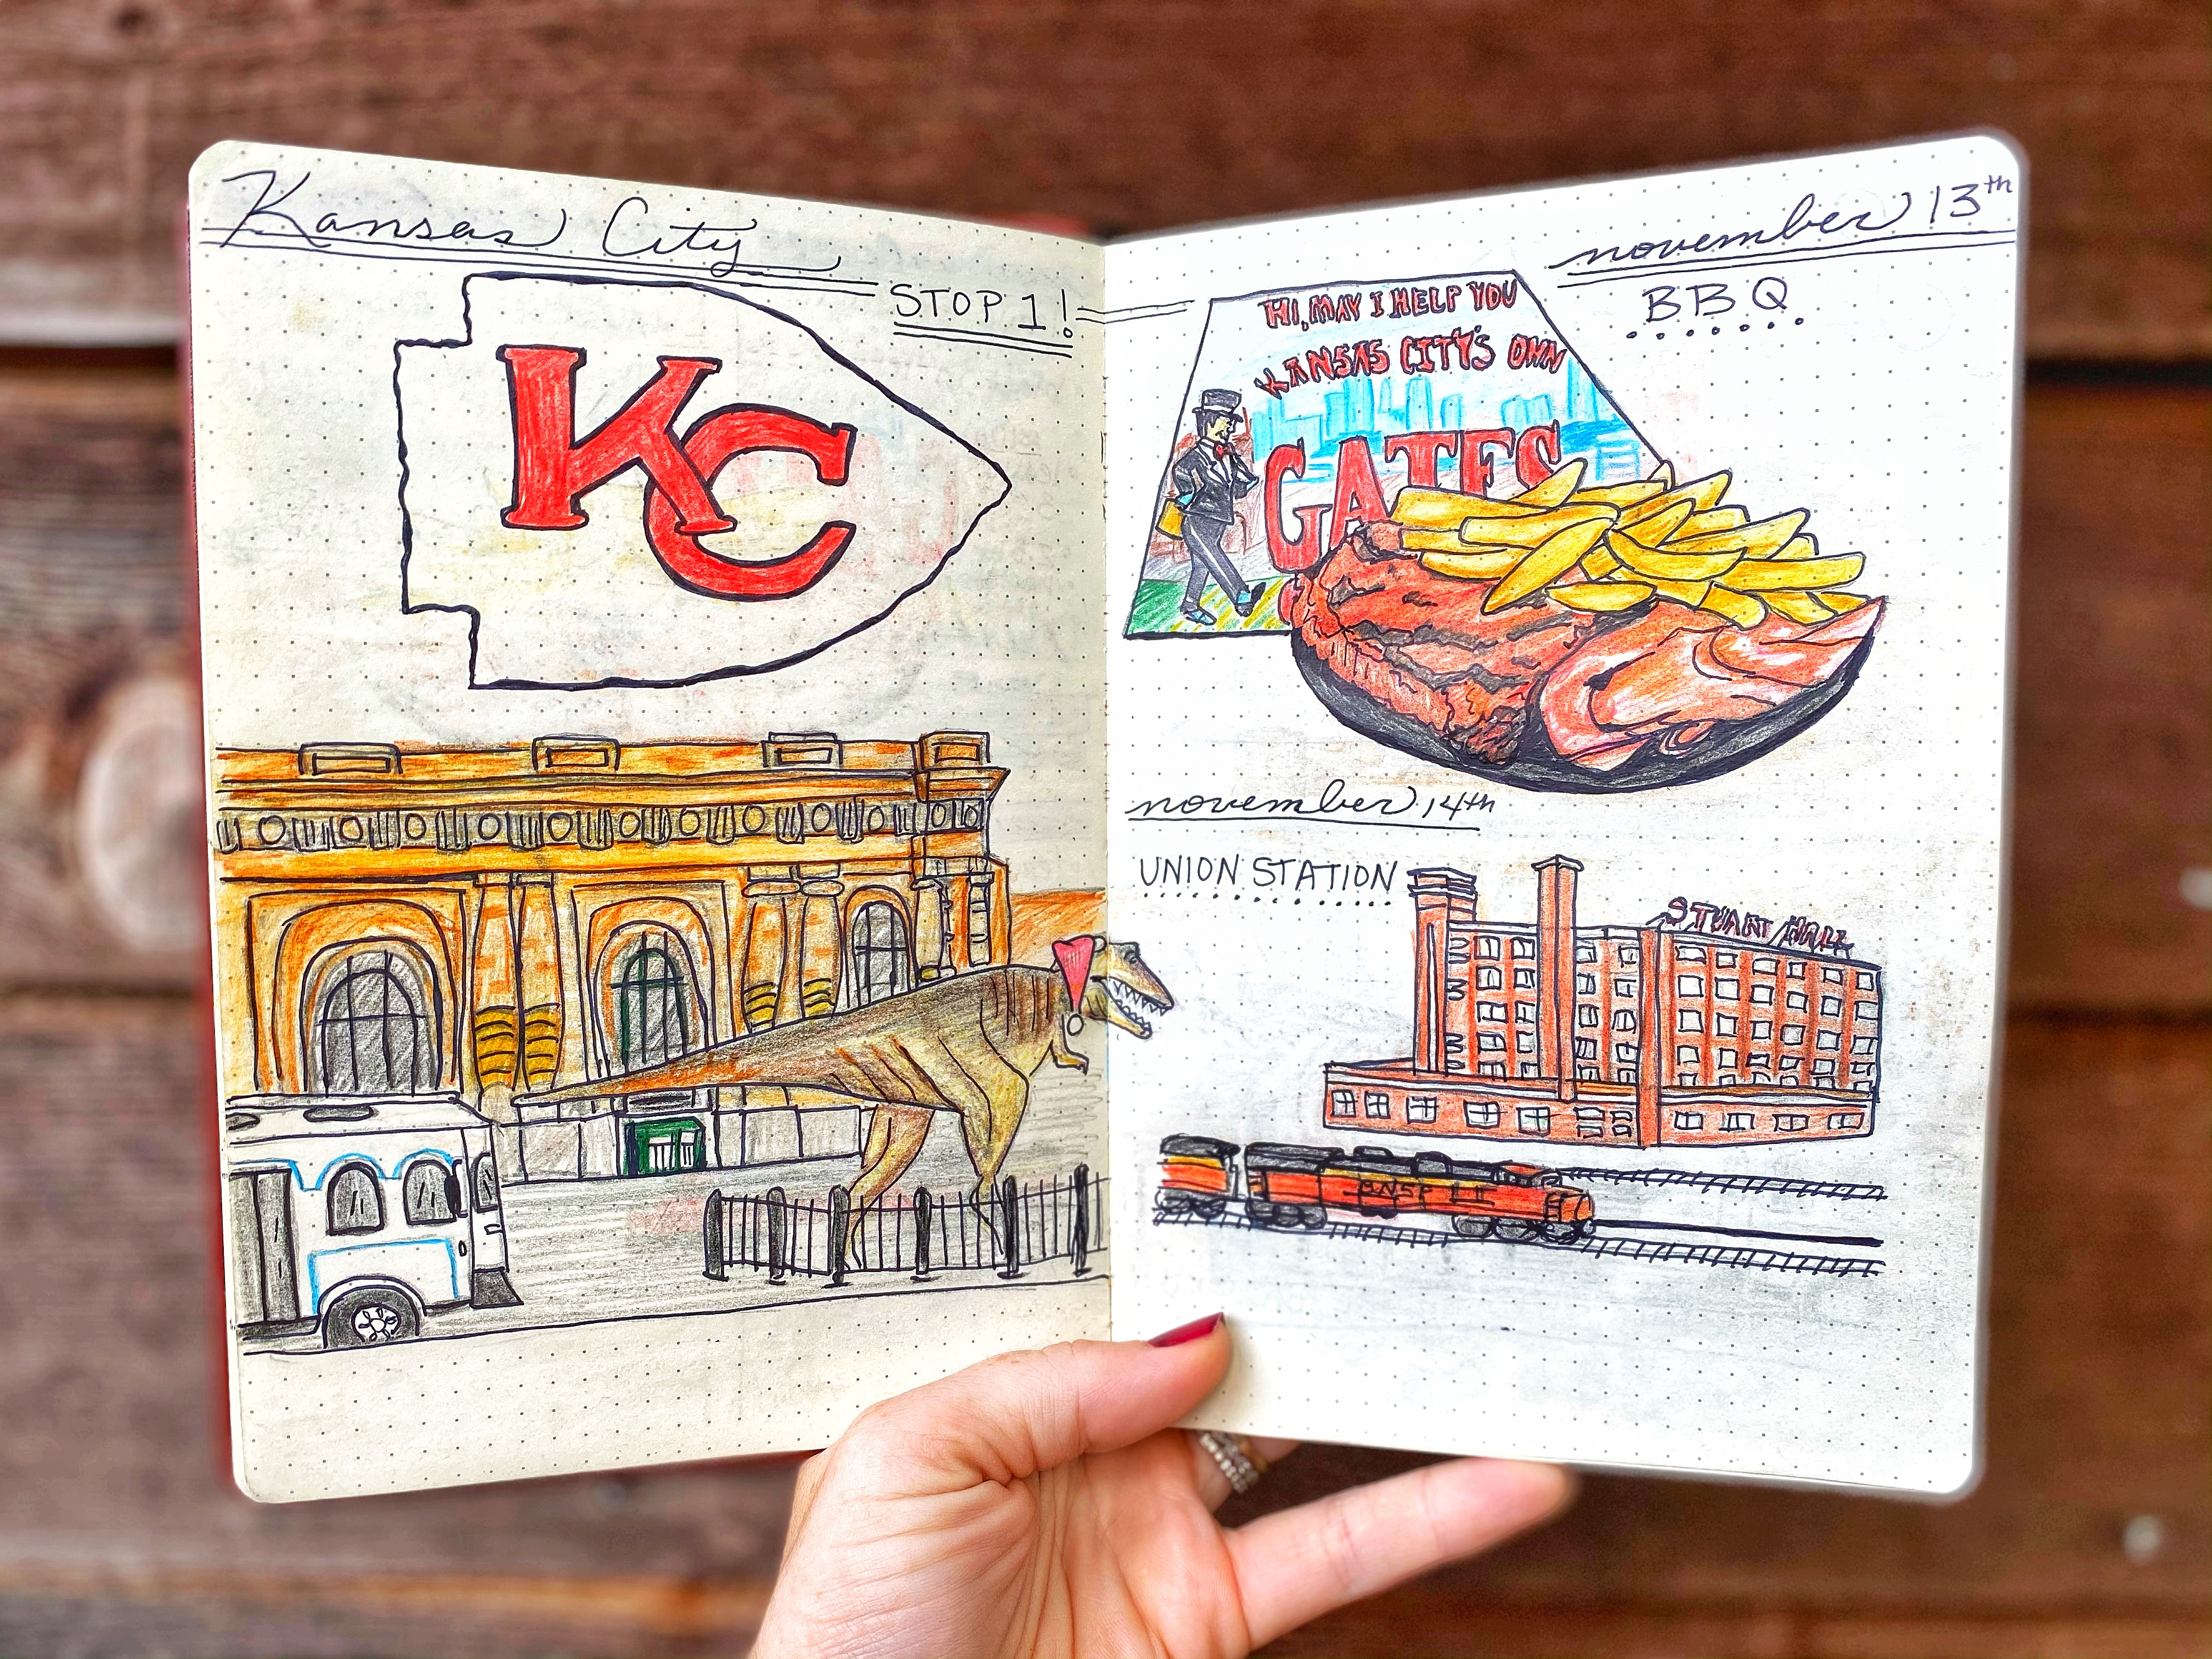 Kansas City
STOP 1!
KC
november 13th
BBQ
HI, MAY I HELP YOU
KANSAS CITY'S OWN
GATES
november 14th
UNION STATION
STUART HALL
BNSF